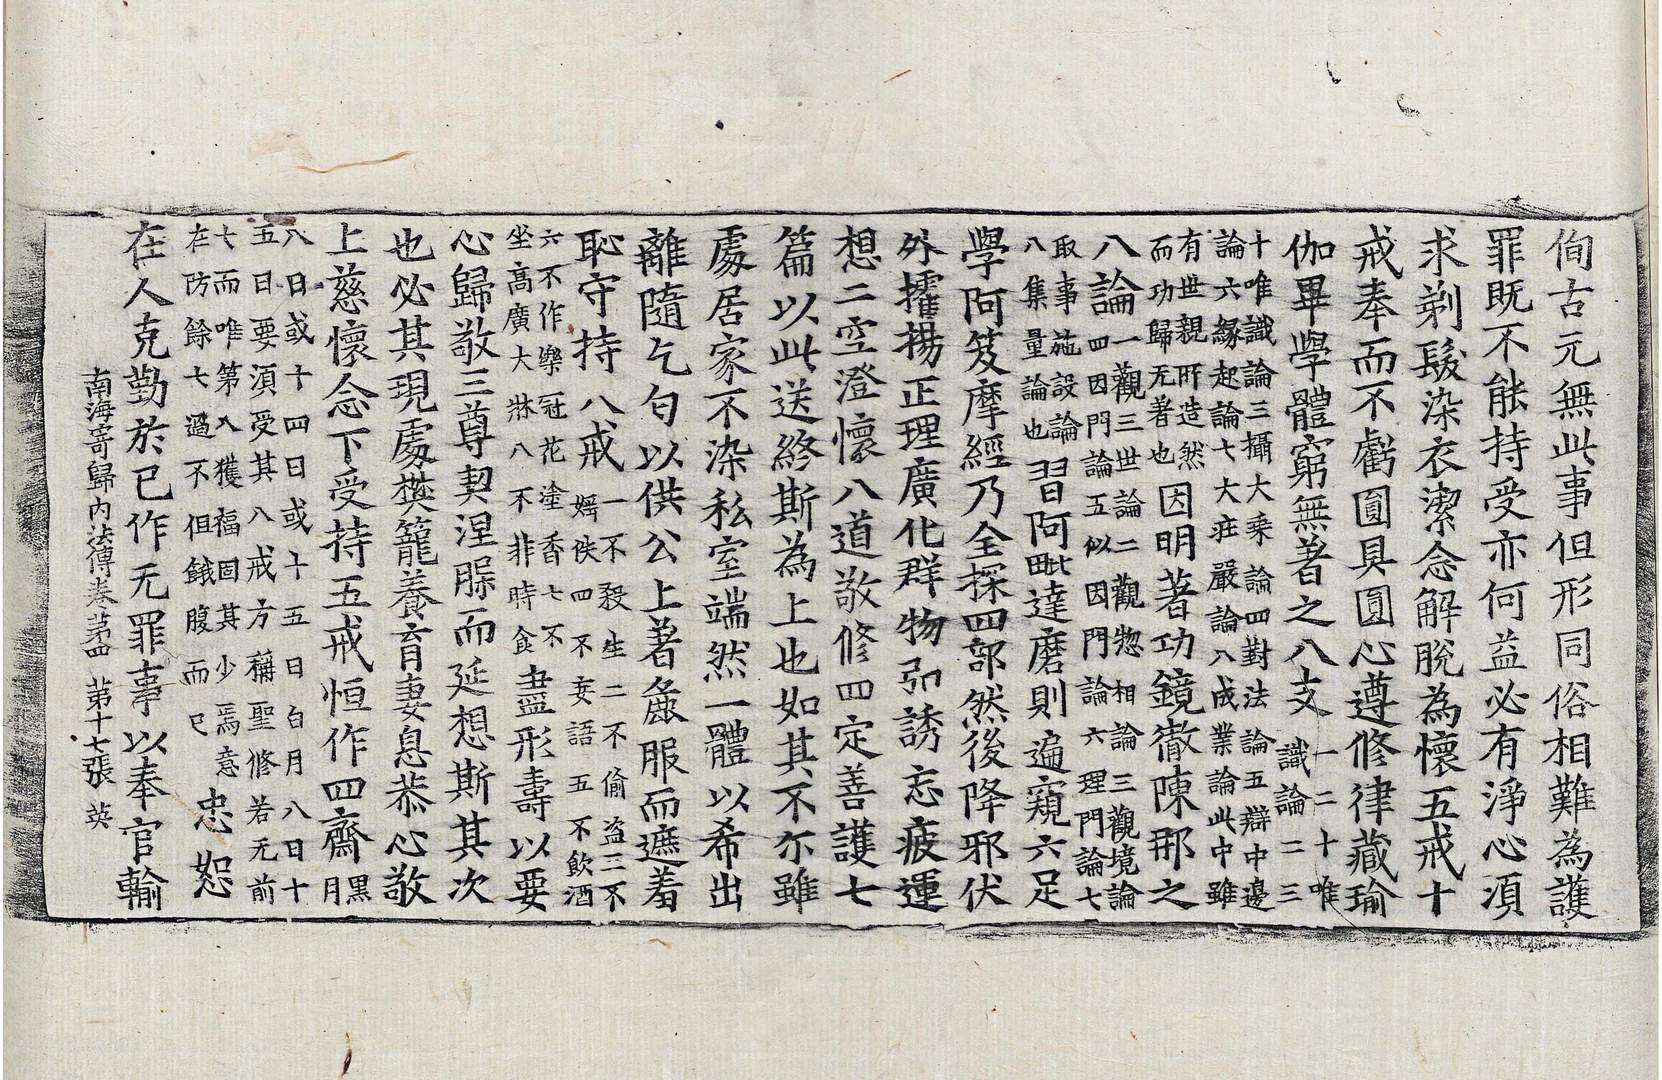 侚古元無此事但形同俗相難為護
罪既不能持受亦何益必有淨心湏
求剃髮染衣潔念解脫為懷五戒十
戒奉而不虧圓具圓心遵修律藏瑜
伽畢學體窮無著之八支一二十唯識論二三
十唯識論三攝大乘論四對法論五辯中邊
論六緣起論七大莊嚴論八成業論此中雖
有世親所造然而功歸无著也因明著功鏡徹陳那之
八論一觀三世論二觀惣相論三觀境論四因門論五似因門論六理門論七
取事施設論八集量論也習阿毗達磨則遍窺六足
學阿笈摩經乃全採四部然後降邪伏
外擢揚正理廣化群物弘誘忘疲運
想二空澄懷八道敬修四定善護七
篇以此送終斯為上也如其不尒雖
處居家不染私室端然一體以希出
離隨乞匂以供公上著麁服而遮羞
恥守持八戒一不殺生二不偷盗三不婬佚四不妄語五不飲酒
六不作樂冠花塗香七不坐高廣大牀八不非時食盡形壽以要
心歸敬三尊契涅脲而延想斯其次
也必其現處樊籠養育妻息恭心敬
上慈懷念下受持五戒恒作四齋黑月
八日或十四日或十五日白月八日十
五日要湏受其八戒方稱聖修若无前
七而唯第八獲福固其少焉意在防餘七過不但餓腹而已忠恕
在人克勤於已作无罪事以奉官輸
南海寄歸內法傳卷第四 第十七張 英